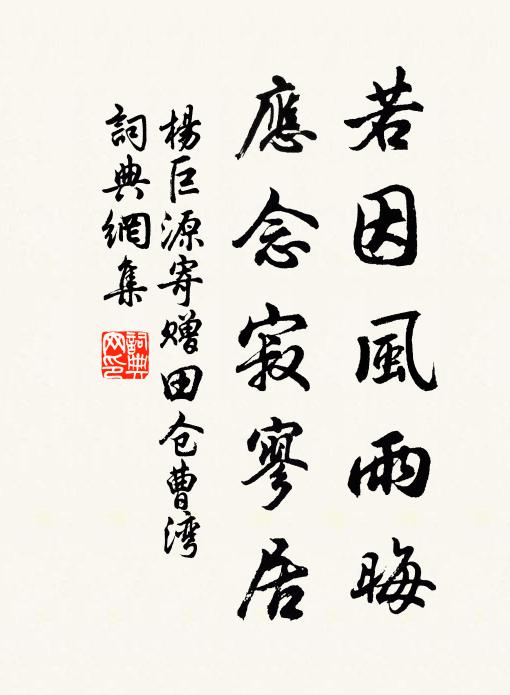 若因風雨晦
應念寂寥居
楊巨源寄赠田仓曹湾
詞典網集
詞典網印